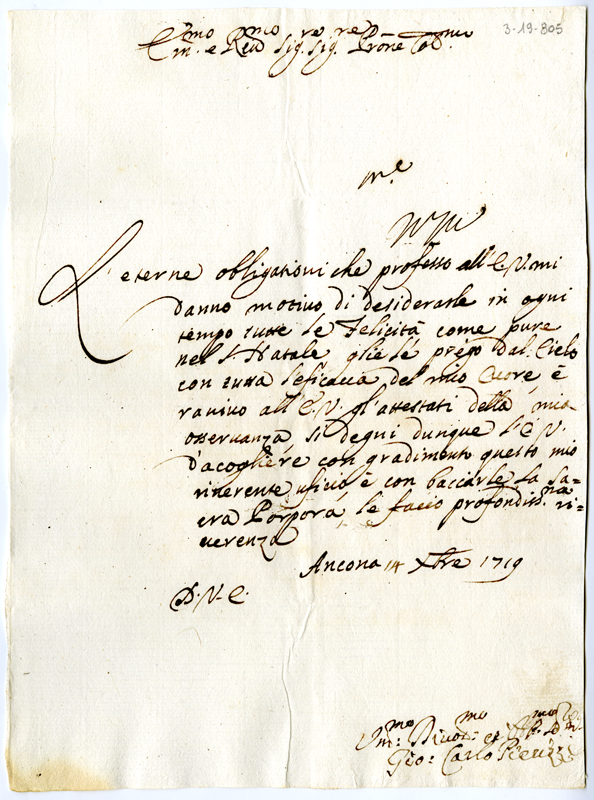 3-19-805
Em.mo e Rev.mo Sig.re Sig.re Prone Col.mo
L'eterne obligationi che professo all'E.V. mi
danno motivo di desiderarle in ogni
tempo tutte le Felicità come pure
nel S. Natale glie le prego dal Cielo
con tutta l'eficacia del mio Cuore è
ravivo all'E.V. gl'attestati della mia
osseruanza, si degni dunque l'E.V.
d'acogliere con gradimento questo mio
riuerente uficio è con bacciarle la Sa=
cra Porpora, le faccio profondiss.ma ri=
uerenza
Ancona 14 Xbre 1719
D.V.E.
Um.mo Diuot.mo et Obb.mo
Gio: Carlo